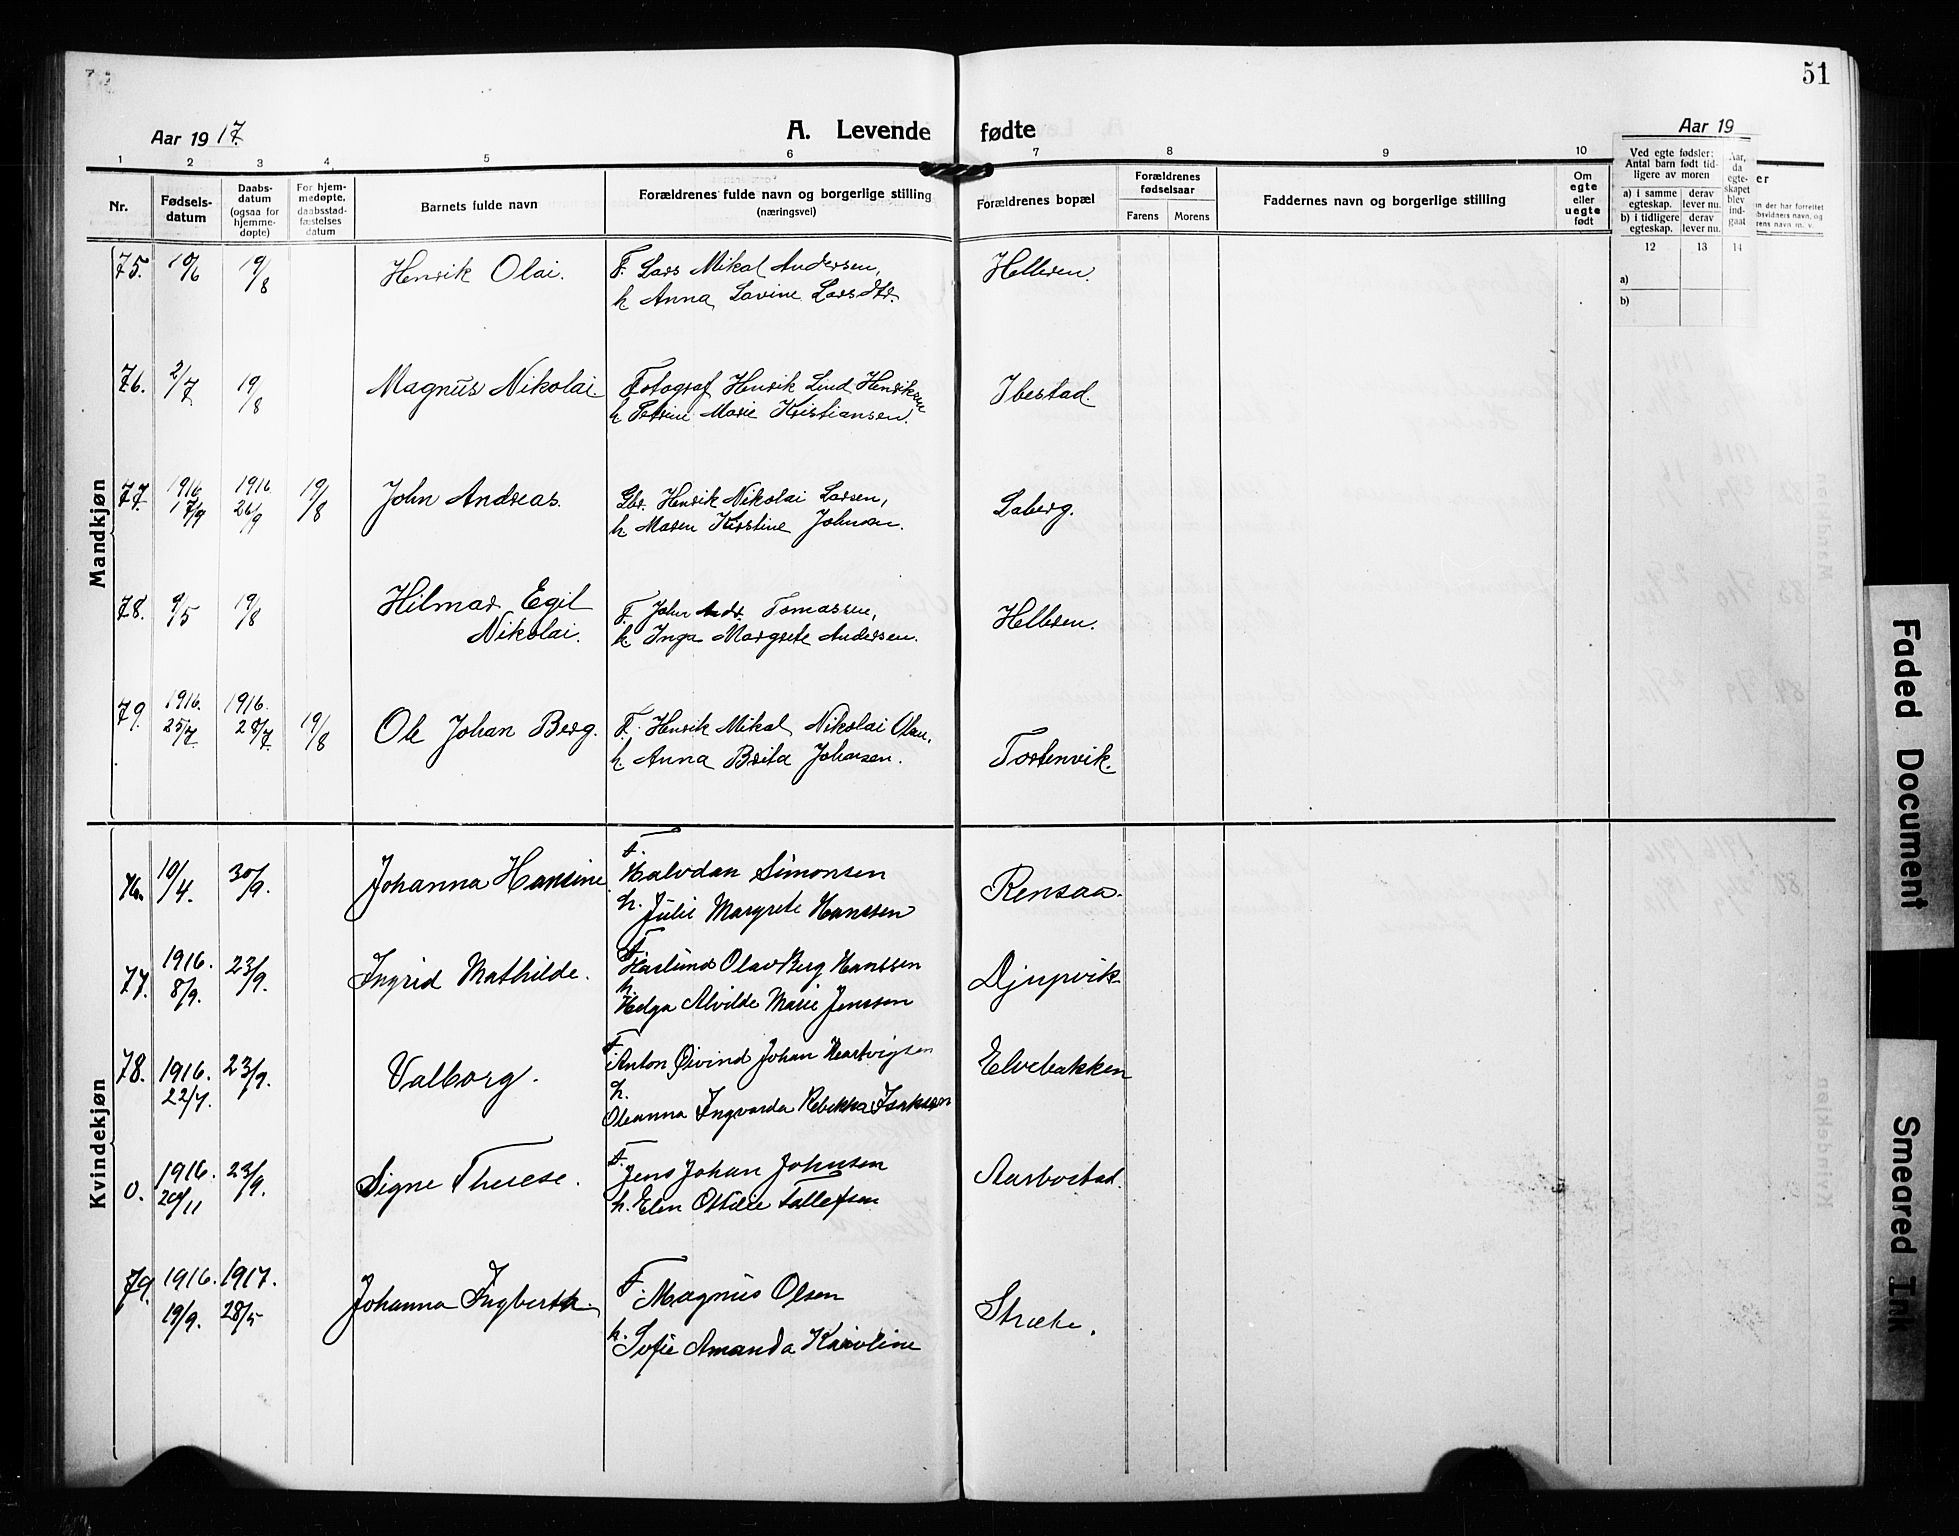 51
Aar 1917.
A. Levende fødte
Aar 19
1 2 3 4 5 6 7 8 9 10
Nr.
Fødsels-
datum
Daabs-
datum
(ogsaa for
hjemme-
døpte)
For hjem-
medøpte,
daabsstad-
fæstelses
datum
Barnets fulde navn
Forældrenes fulde navn og borgerlige stilling
(næringsvei)
Forældrenes bopæl
Forældrenes
fødselsaar
Farens Morens
Faddernes navn og borgerlige stilling
Om
egte
eller
uegte
født
Ved egte fødsler:
Antal barn født tid-
ligere av moren
a) i samme
egteskap.
derav
lever nu.
b) i tidligere
egteskap.
derav
lever nu.
Aar,
da
egte-
skapet
blev
ind-
gaat
12 13 14
a)
b)
Mandkjøn
75. 10/6 19/8 Henrik Olai. F. Lars Mikal Andersen, Helleren.
h. Anna Lovine Larsdtr.
76. 2/7 19/8 Magnus Nikolai. Fotograf Henrik Lind Henriksen Ibestad.
h. Petrine Marie Kristiansen.
77. 1916 17/9 1916 26/9 19/8 John Andreas. Gbr. Henrik Nikolai Larsen, Laberg.
h. Maren Kirstine Johnsen.
78. 9/5 19/8 Hilmar Egil
Nikolai. F. John Andr. Tomassen, Helleren.
h. Inga Margrete Andersen.
79. 1916. 25/7 1916. 28/7 19/8 Ole Johan Berg. F. Henrik Mikal Nikolai Olsen. Tostenvik.
h. Anna Brita Johansen.
Kvindekjøn
76. 10/4. 30/9. Johanna Hansine F. Halvdan Simonsen Rensaa.
h. Julie Margrete Hanssen
77. 1916. 8/9. 23/9. Ingrid Mathilde. F. Haslund Olav Berg Hanssen Djupvik
h. Helga Alvilde Marie Jenssen
78. 1916. 22/7. 23/9. Valborg. F. Anton Øivind Johan Hartvigsen Elvebakken
h.
Oleanna Ingvarda Rebekka Isaksen
0. 1916. 20/11 23/9. Signe Therese. F. Jens Johan Johnsen Aarbostad.
h. Elen Otilie Tollefsen
79. 1916. 19/9. 1917. 28/5 Johanna Ingberta. F. Magnus Olsen Stræte.
h. Sofie Amanda Karoline
Faded Document
Smeared Ink